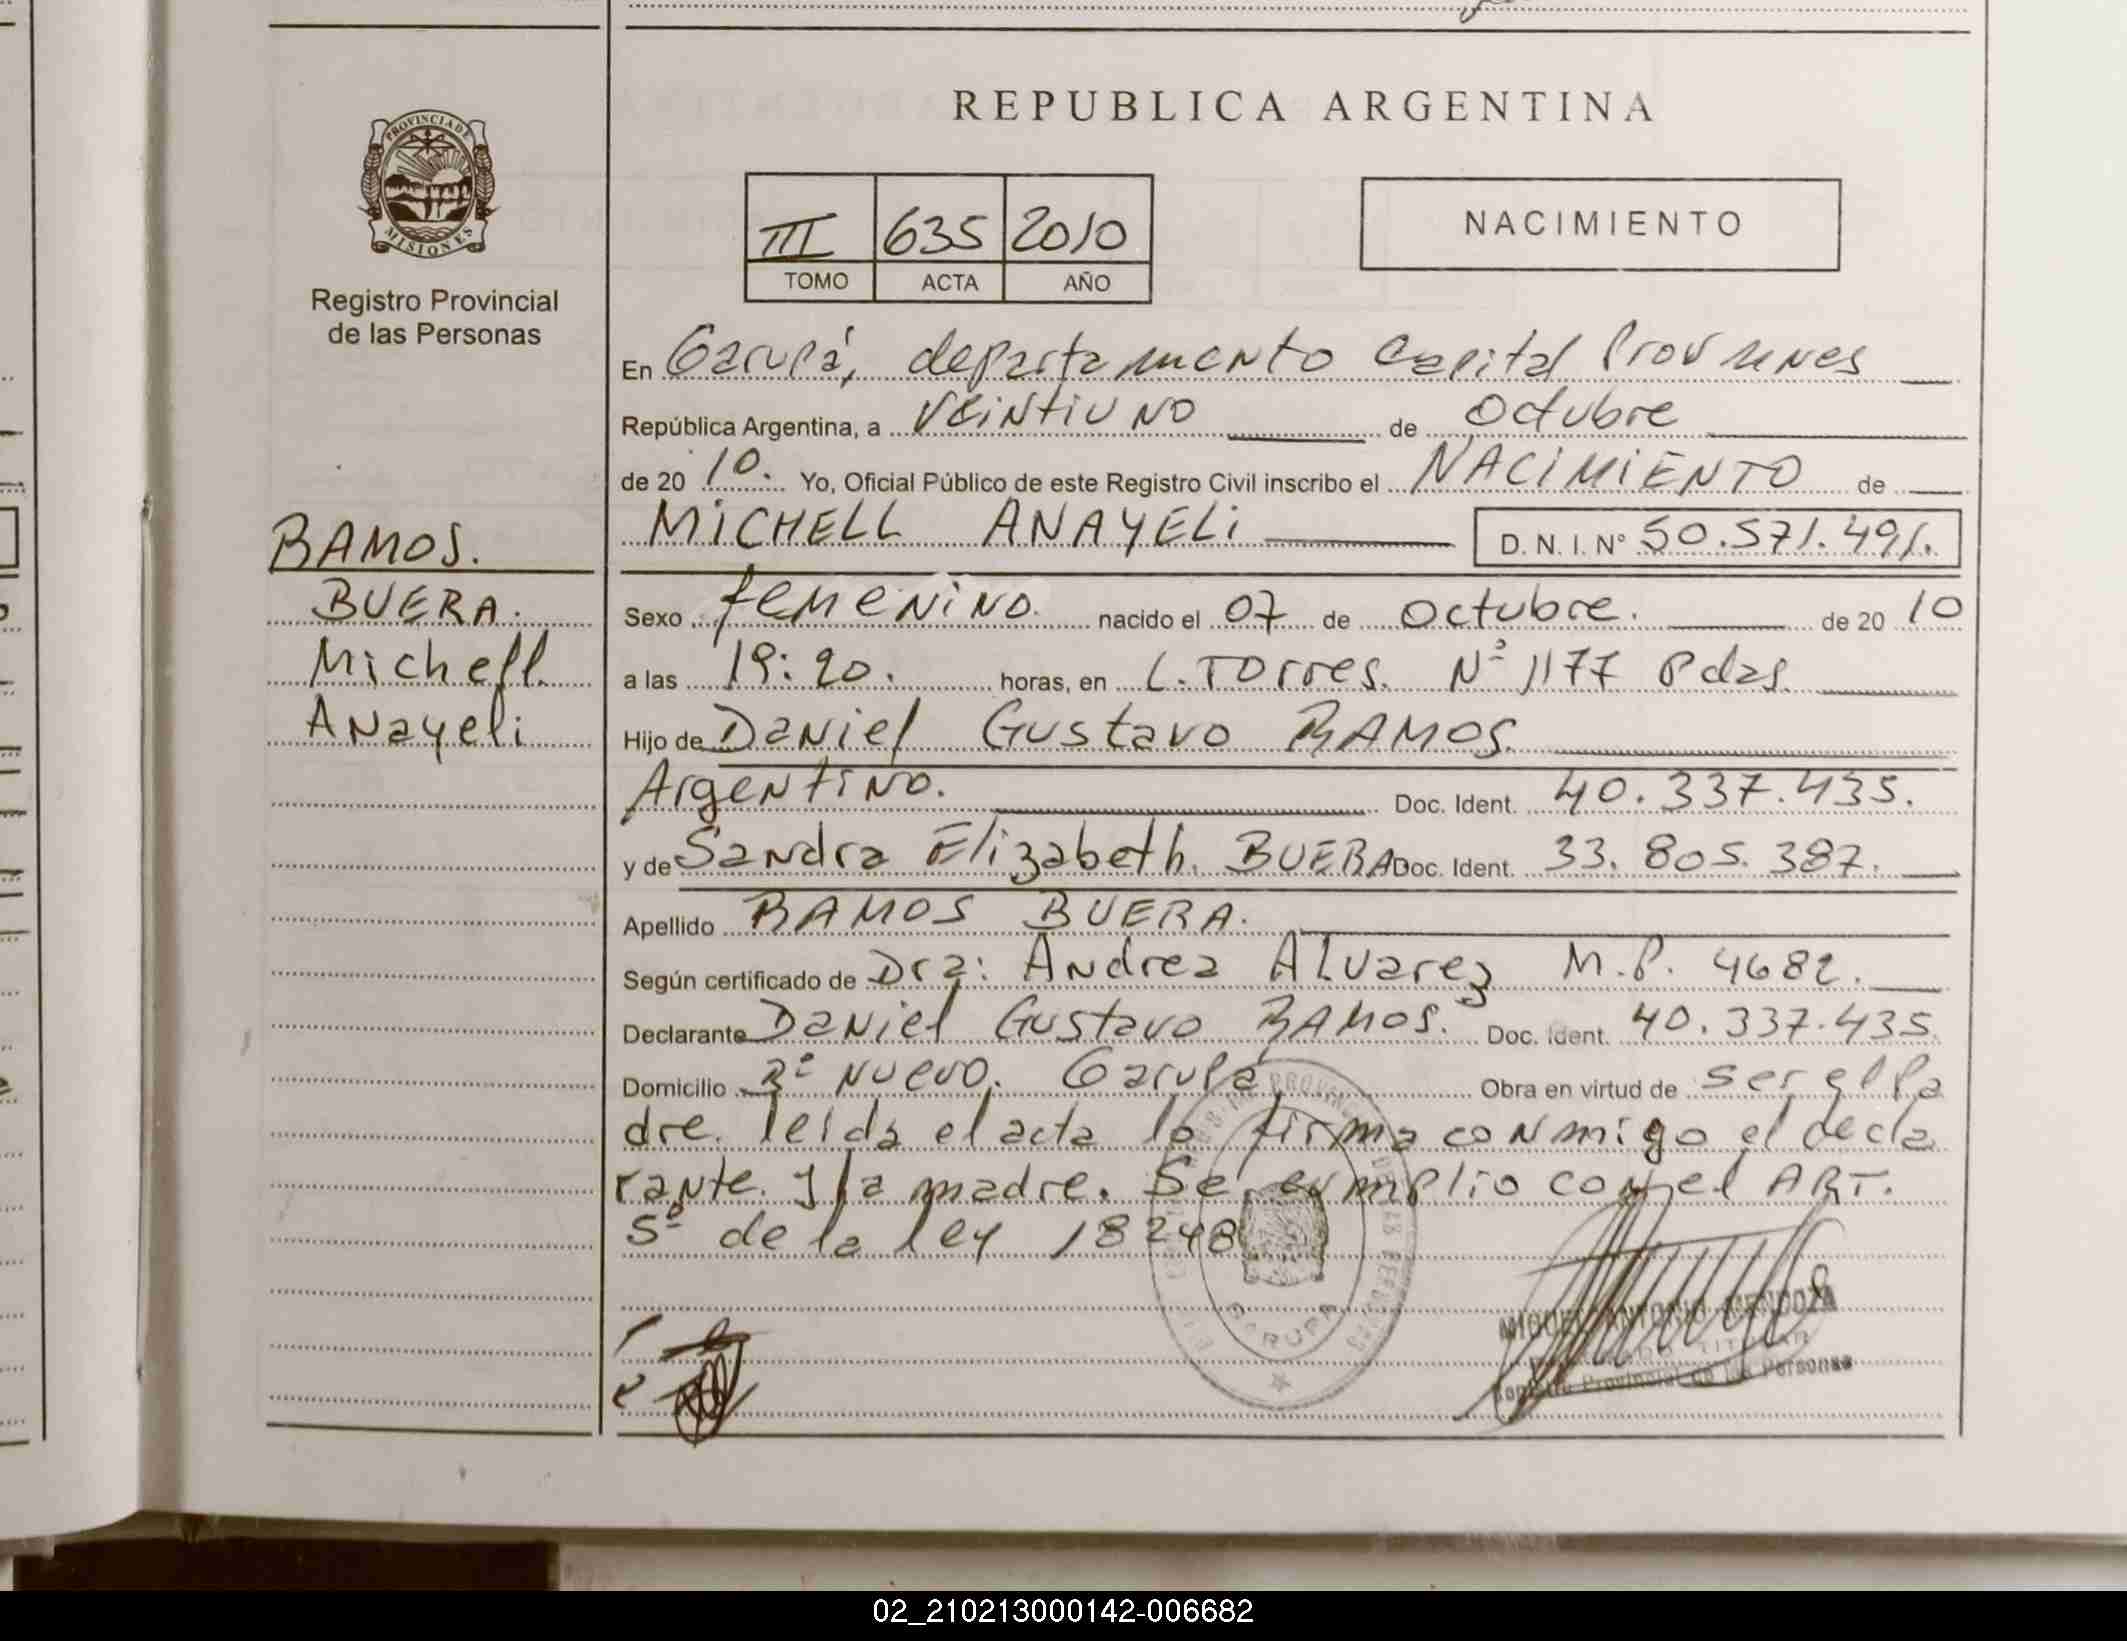 REPUBLICA ARGENTINA
PROVINCIA DE
MISIONES
Registro Provincial
de las Personas
III 635 2010
TOMO ACTA AÑO
NACIMIENTO
En Garupá, departamento Capital Prov
República Argentina, a Veintiuno de Octubre
de 20 10. Yo, Oficial Público de este Registro Civil inscribo el NACIMIENTO de
MICHELL ANAYELi D. N. I. Nº 50.571.491.
RAMOS.
BUERA.
Michell.
Anayeli
Sexo femenino. nacido el 07 de Octubre. de 20 10
a las 19:20. horas, en L. Torres. Nº 1177 Pdas.
Hijo de Daniel Gustavo RAMOS.
Argentino. Doc. Ident. 40.337.435.
y de Sandra Elizabeth. BUERA Doc. Ident. 33.805.387.
Apellido RAMOS BUERA.
Según certificado de Dra: Andrea Alvarez M.P. 4682.
Declarante Daniel Gustavo RAMOS. Doc. Ident. 40.337.435.
Domicilio Bº Nuevo. Garupá Obra en virtud de ser el Pa
dre. leida el acta la firma conmigo el decla
rante. y la madre. Se cumplio con el ART.
5º de la ley 18248
GARUPA
MIGUEL ANTONIO MENDOZA
TITULAR
Registro Provincial de las Personas
02_210213000142-006682